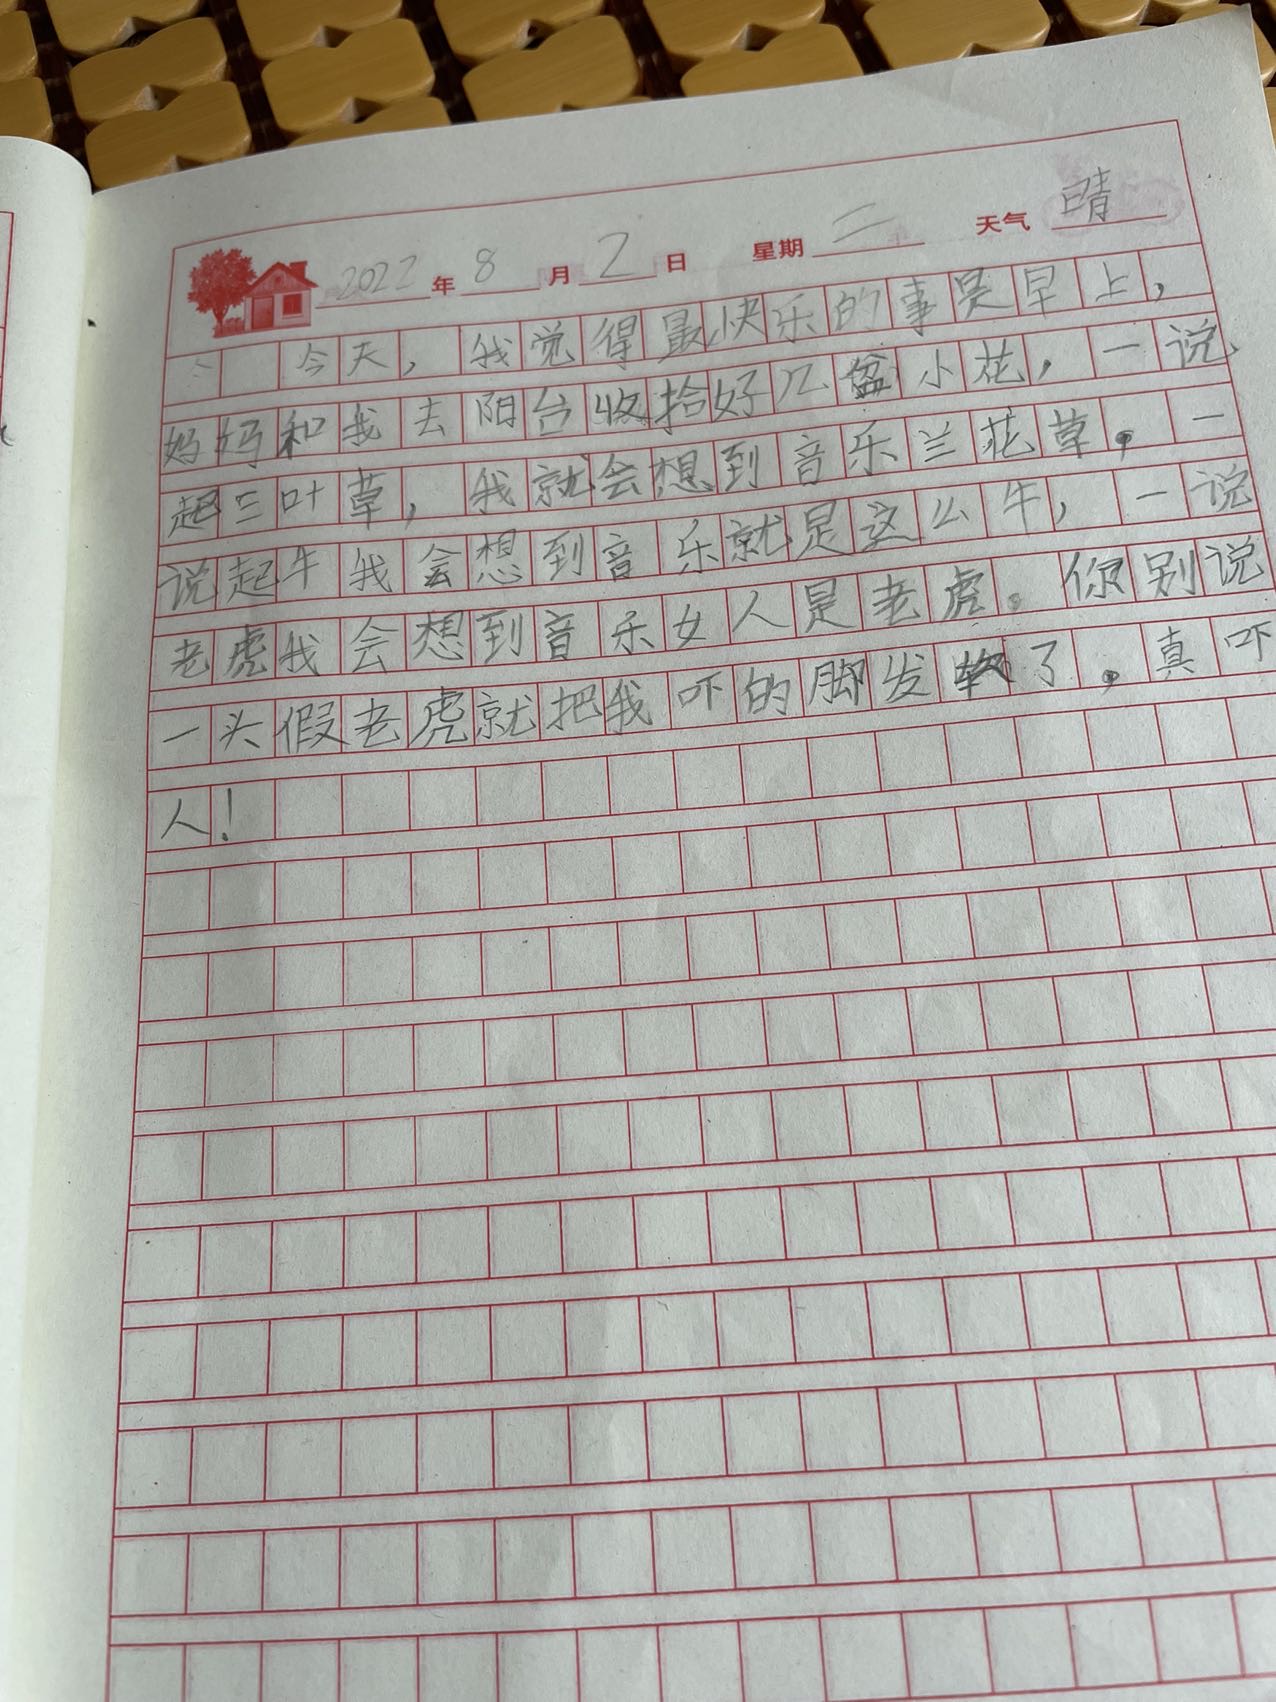 2022年8月2日 星期二 天气晴
今天，我觉得最快乐的事是早上，
妈妈和我去阳台收拾好几盆小花，一说
起三叶草，我就会想到音乐兰花草。一
说起牛我会想到音乐就是这么牛，一说
老虎我会想到音乐女人是老虎。你别说
一头假老虎就把我吓的脚发软了。真吓
人！